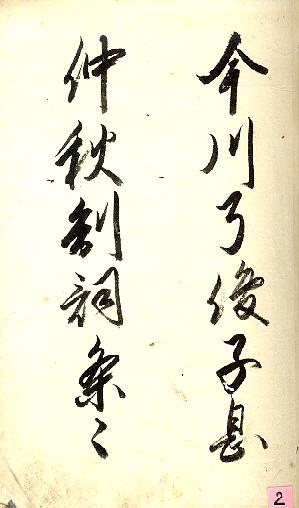 今川了俊子息
仲秋制詞条〻
2